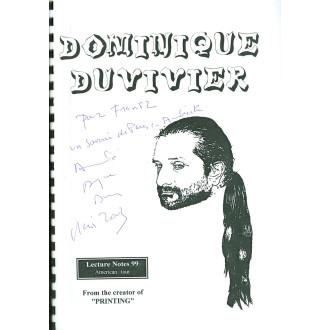 DOMINIQUE
DUVIVIER
pour Frantz
un souvenir de
Lecture Notes 99
American Tour
From the creator of
"PRINTING"